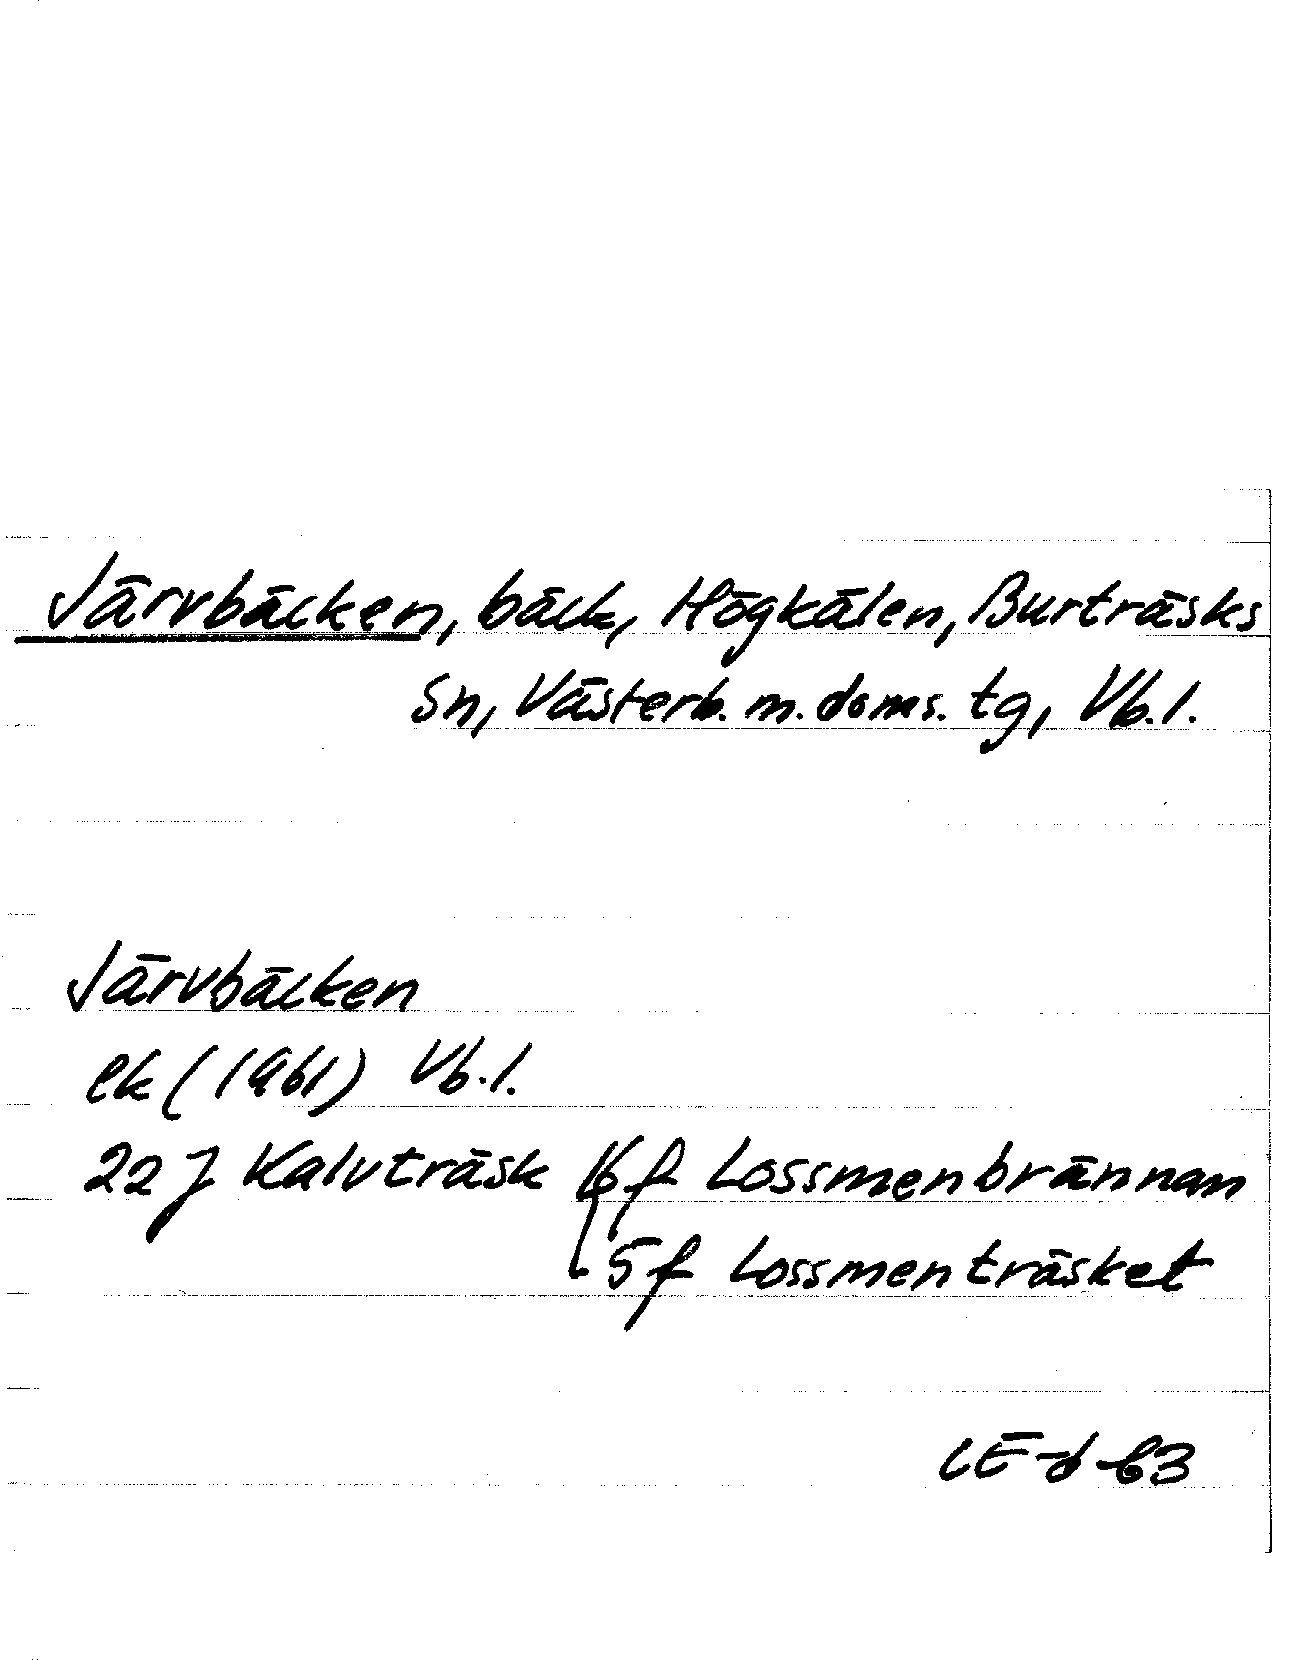 Järvbäcken, bäck, Högkälen, Burträsks
sn, Västerb. m. doms. tg, Vb. l.
Järvbäcken
ek (1961) Vb. l.
22 J Kalvträsk 6 f Lossmenbrännan
5 f Lossmenträsket